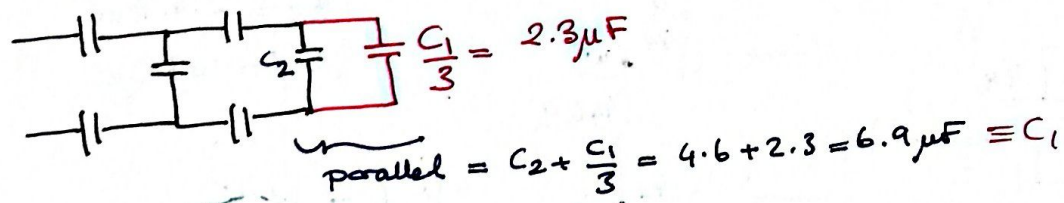 C₂ C₁/3 = 2.3μF
parallel = C₂ + C₁/3 = 4.6 + 2.3 = 6.9 μF ≡ C₁